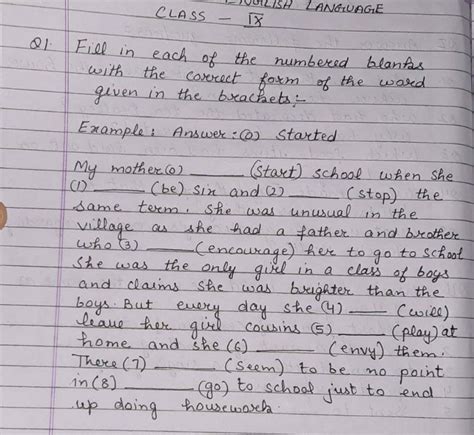 ENGLISH LANGUAGE
CLASS - IX
Q1. Fill in each of the numbered blanks
with the correct form of the word
given in the brackets:-
Example: Answer: (0) Started
My mother (0) ______ (start) school when she
(1) ______ (be) six and (2) ______ (stop) the
same term. She was unusual in the
village as she had a father and brother
who (3) ______ (encourage) her to go to school
She was the only girl in a class of boys
and claims she was brighter than the
boys. But every day she (4) ______ (will)
leave her girl cousins (5) ______ (play) at
home and she (6) ______ (envy) them.
There (7) ______ (seem) to be no point
in (8) ______ (go) to school just to end
up doing housework.